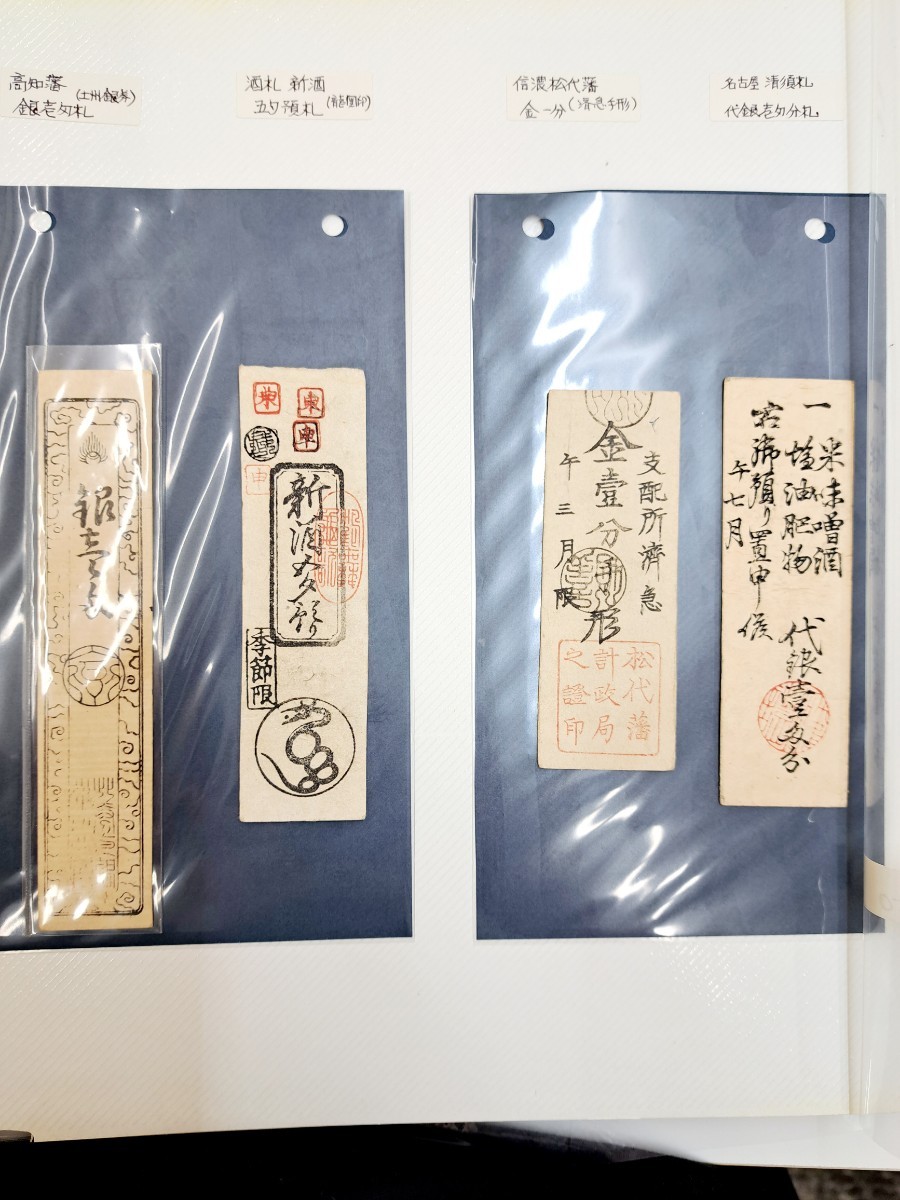 高知藩 (土州銀券)
銀壱匁札
酒札 新酒
五夕預札 (龍圖印)
信濃松代藩
金一分 (済急手形)
名古屋 清須札
代銀壱匁分札
銀壱匁
東
東
新酒
預り
季節限
支配所濟急
金壹分
手形
午三月限
松代藩
計政局
之證印
一
米味噌酒
塩油肥物
代銀壹匁分
右御預り置申候
午七月